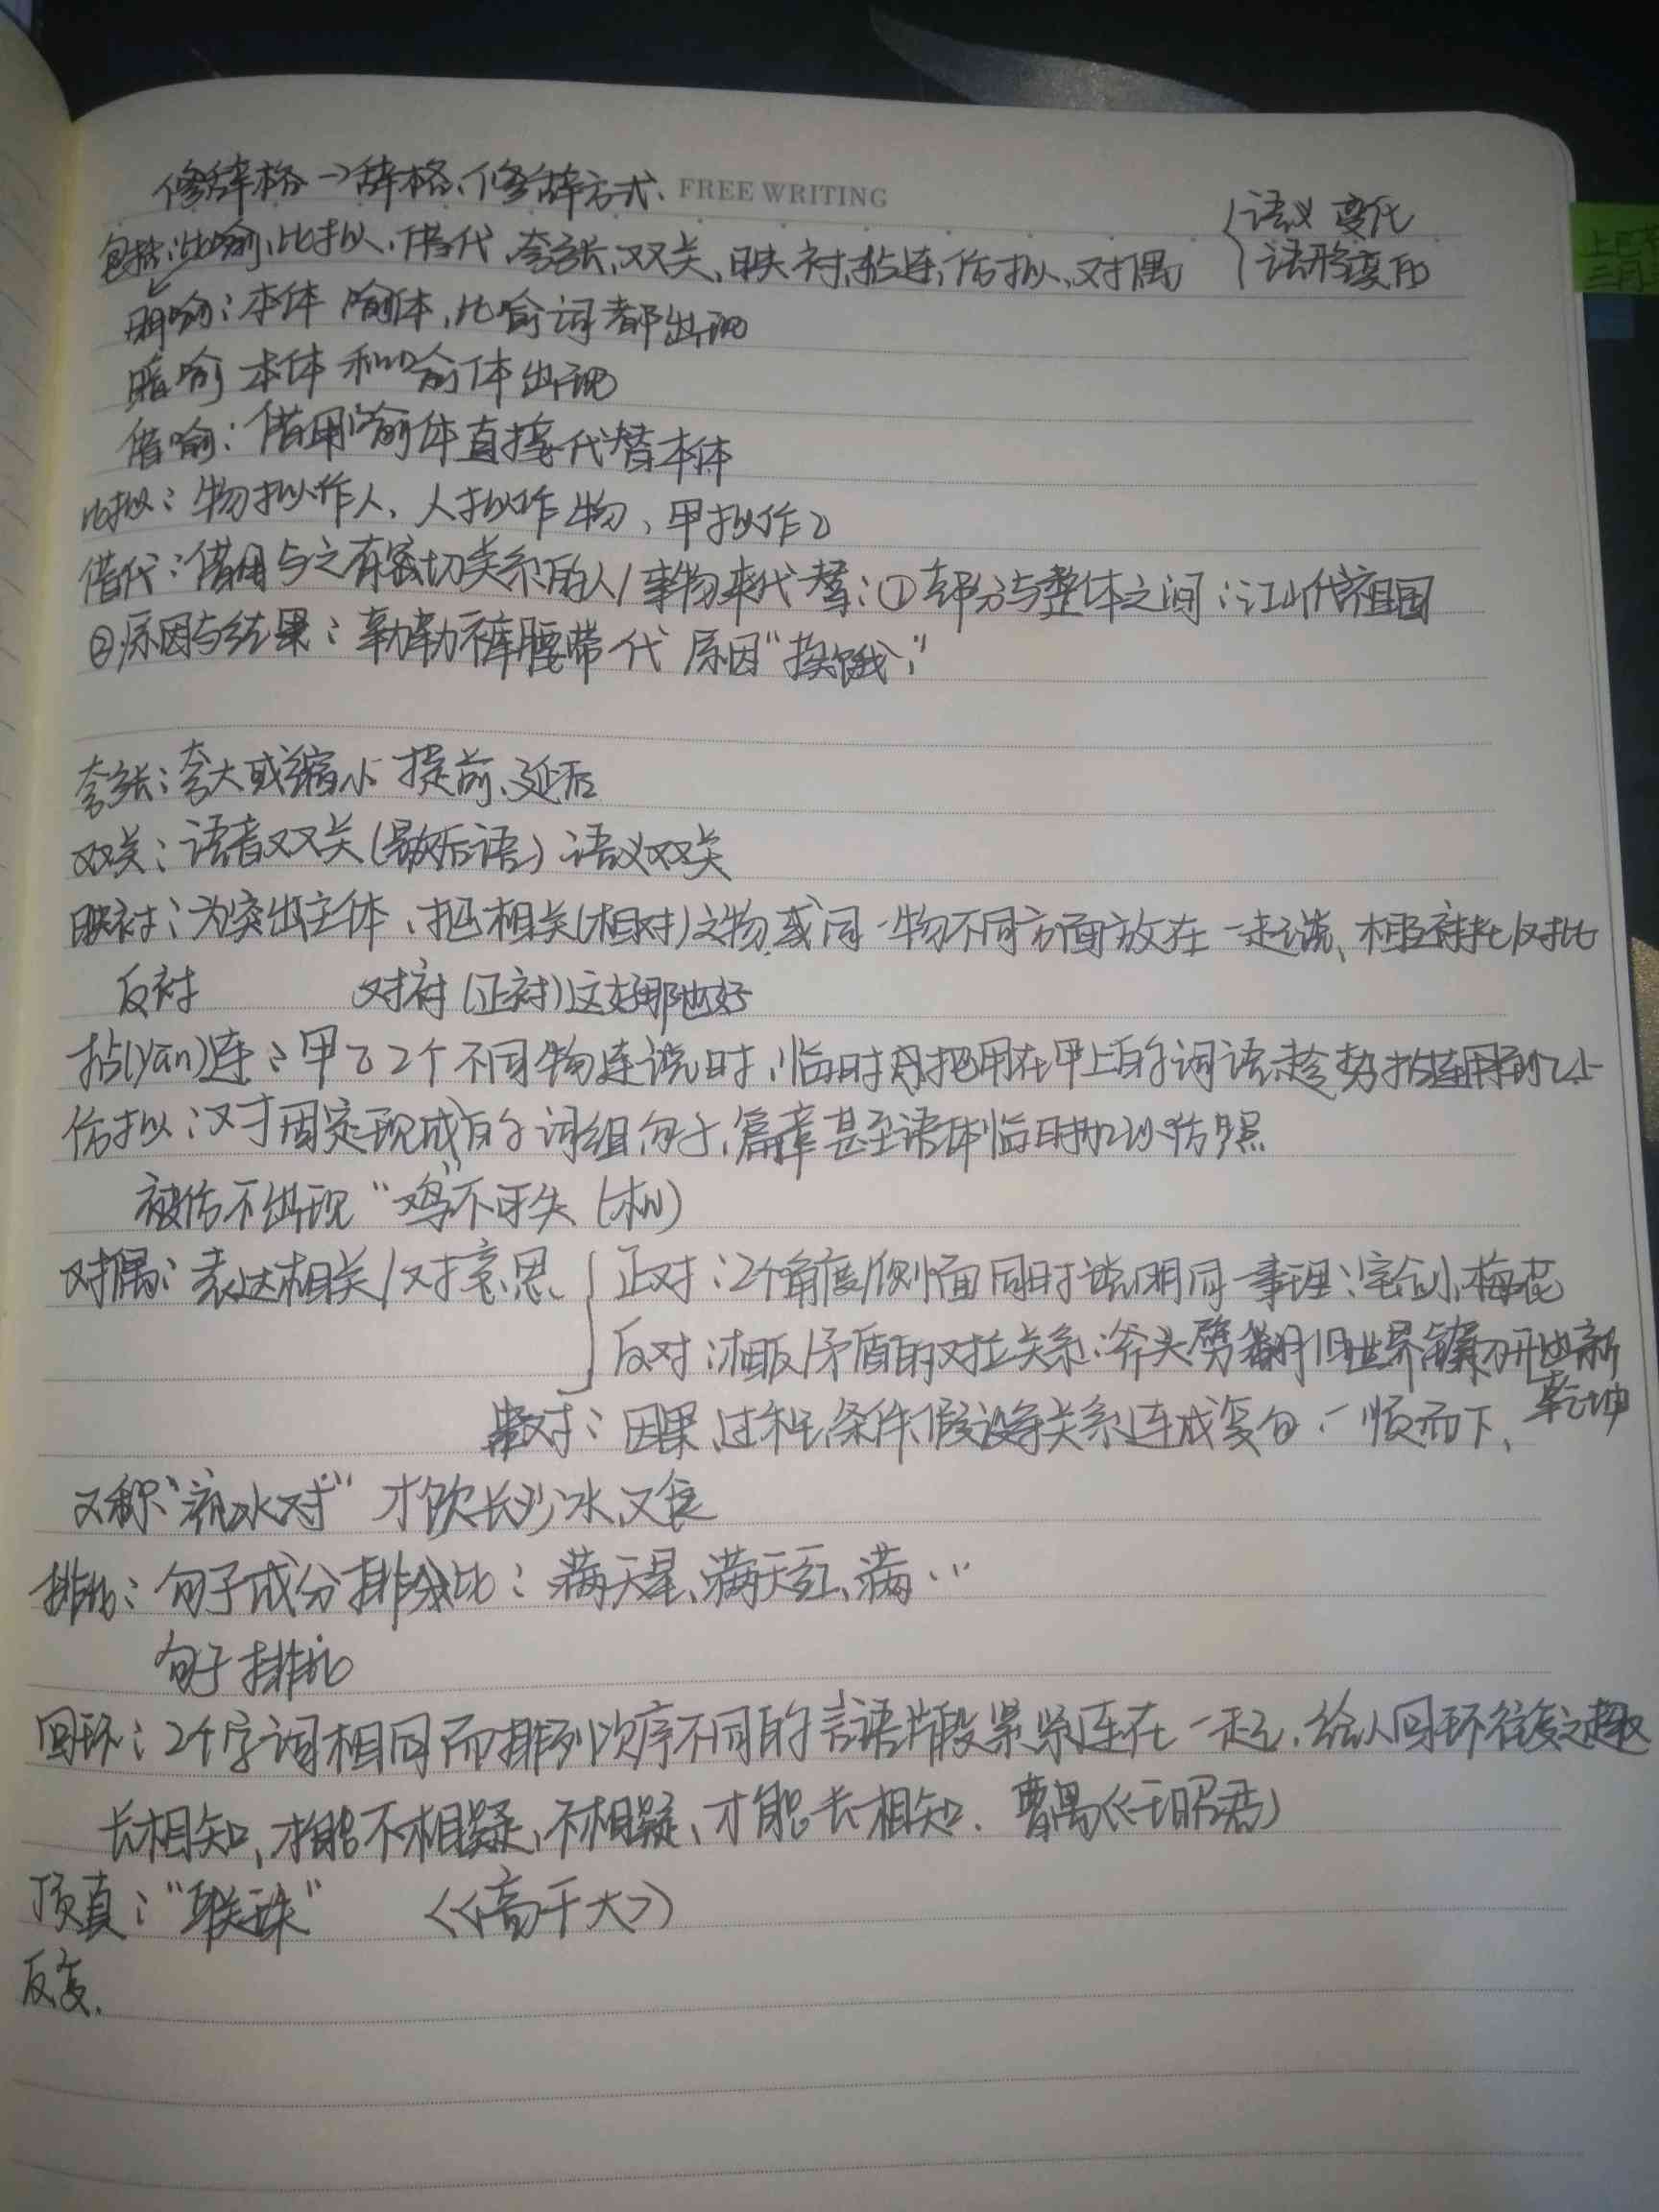 修辞格→辞格、修辞方式、 FREE WRITING
包括:比喻、比拟、借代、夸张、双关、映衬、拈连、仿拟、对偶 { 语义变化
语形变化
明喻:本体 喻体,比喻词都出现
暗喻 本体和喻体出现
借喻:借用喻体直接代替本体
比拟:物拟作人、人拟作物、甲拟作乙
借代:借用与之有密切关系的人/事物来代替:①部分与整体之间:江山代祖国
②原因与结果:勒勒裤腰带代 原因"挨饿"
夸张:夸大或缩小 提前、延后
双关:语音双关(歇后语) 语义双关
映衬:为突出主体、把相关(相对)文物或同一物不同方面放在一起说、相互衬托/对比
反衬 对衬(正衬)这好那也好
拈(yān)连:甲乙2个不同物连说时,临时把用在甲上的词语趁势拈连用到乙上
仿拟:对于固定现成的词组、句子、篇章甚至语体临时加以仿照
被仿不出现 "鸡"不可失(机)
对偶:表达相关/对意思 { 正对:2个角度/侧面同时说明同一事理:宝剑、梅花
反对:相反/矛盾的对立关系:斧头劈翻旧世界 镰刀开出新
乾坤
串对:因果、过程、条件、假设等关系连成复句,一顺而下、
又称"流水对" 才饮长沙水,又食
排比:句子成分排比:满天星、满天红、满…
句子排比
回环:2个字词相同而排列次序不同的言语片段紧紧连在一起,给人回环往复之趣
长相知,才能不相疑、不相疑、才能长相知. 曹禺《王昭君》
顶真:"联珠" 《高干大》
反复.